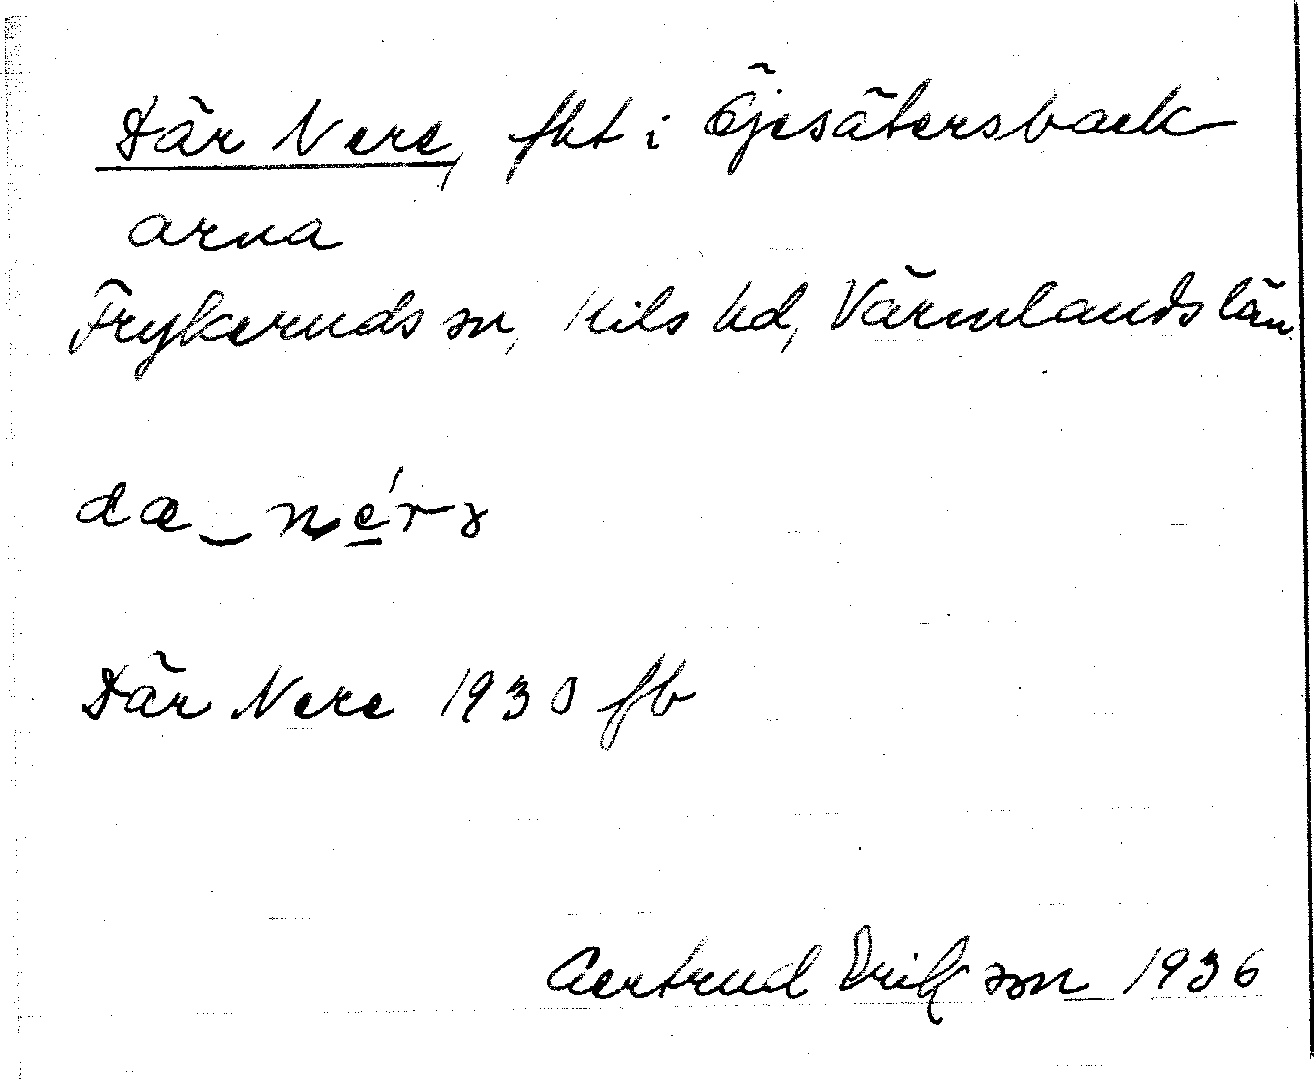 Där Nere, fht i Öjesätersback
arna
Frykeruds sn, Kils hd, Värmlands län
dæ_ nérɜ
Där Nere 1930 fb
Gertrud Erikson 1936